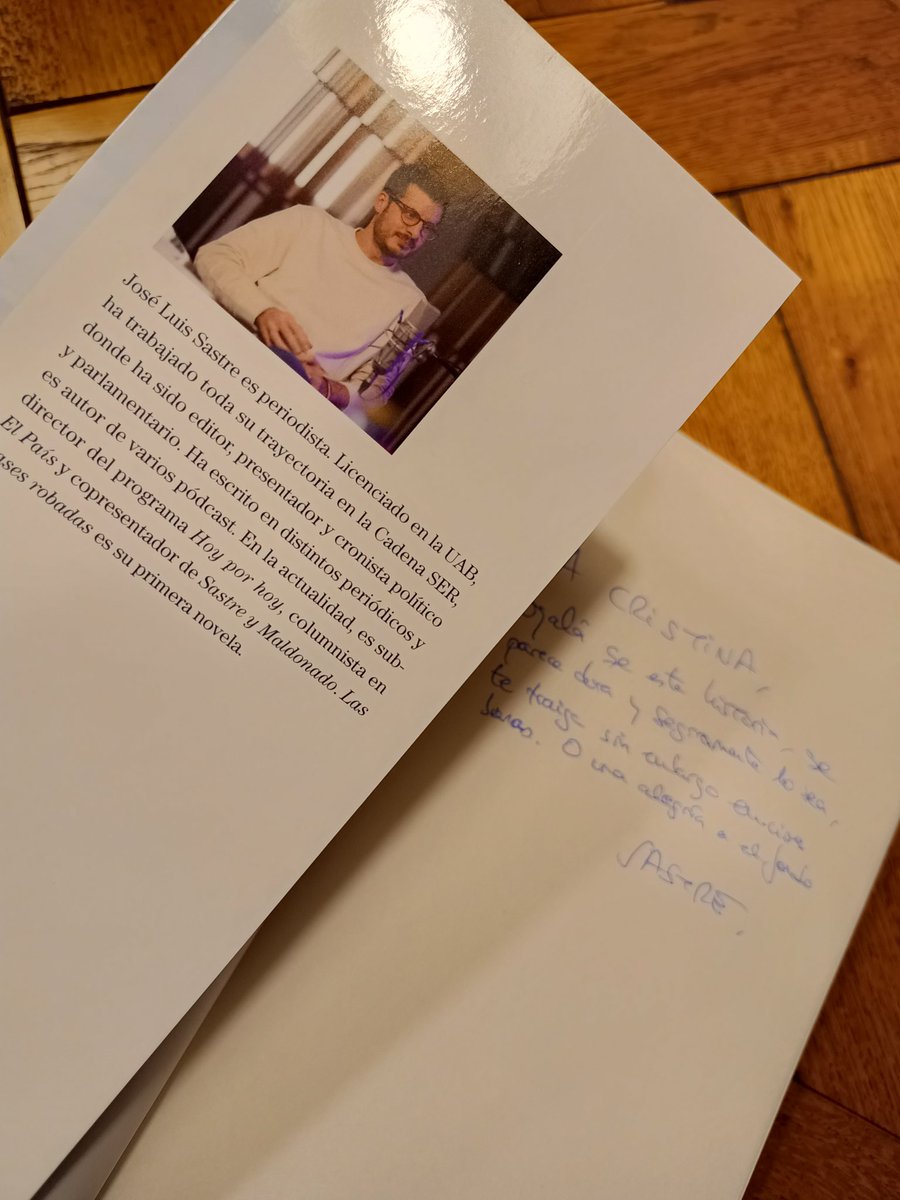 José Luis Sastre es periodista. Licenciado en la UAB,
ha trabajado toda su trayectoria en la Cadena SER,
donde ha sido editor, presentador y cronista político
y parlamentario. Ha escrito en distintos periódicos y
es autor de varios pódcast. En la actualidad, es sub-
director del programa Hoy por hoy, columnista en
El País y copresentador de Sastre y Maldonado. Las
ases robadas es su primera novela.
A CRISTINA,
Ojalá se esta historia, se
parece dura y seguramente lo sea,
te traiga sin embargo
buenas. O una alegría o
SASTRE.